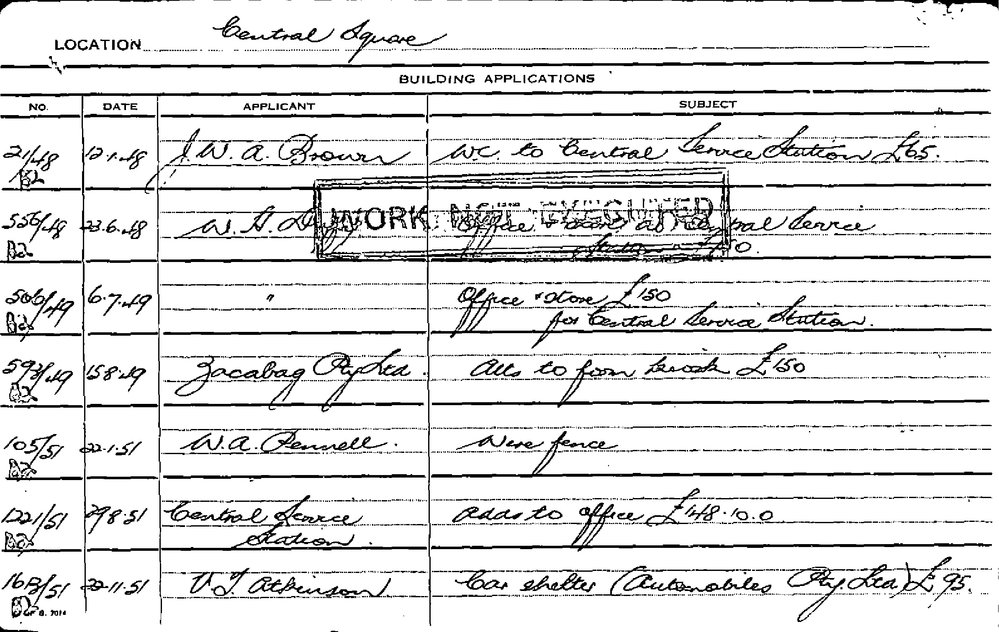 Central Square
LOCATION
BUILDING APPLICATIONS
NO. DATE APPLICANT SUBJECT
21/48 12.1.48 J. W. A. Brown W.C. to Central Service Station £65.
B2
WORK NOT EXECUTED
556/48 23.6.48 W. A. Office & store at Central Service
B2 Station £150.
506/49 6.7.49 " Office & store £150
B2 for Central Service Station.
593/49 15.8.49 Zacabag Pty Ltd. Alts to form kiosk £150
B2
105/51 22.1.51 W. A. Pennell. Wire fence
B2
1221/51 29.8.51 Central Service Adds to office £148.10.0
B2 Station.
22.11.51 V. J. Atkinson Car shelter (Automobiles Pty Ltd) £95.